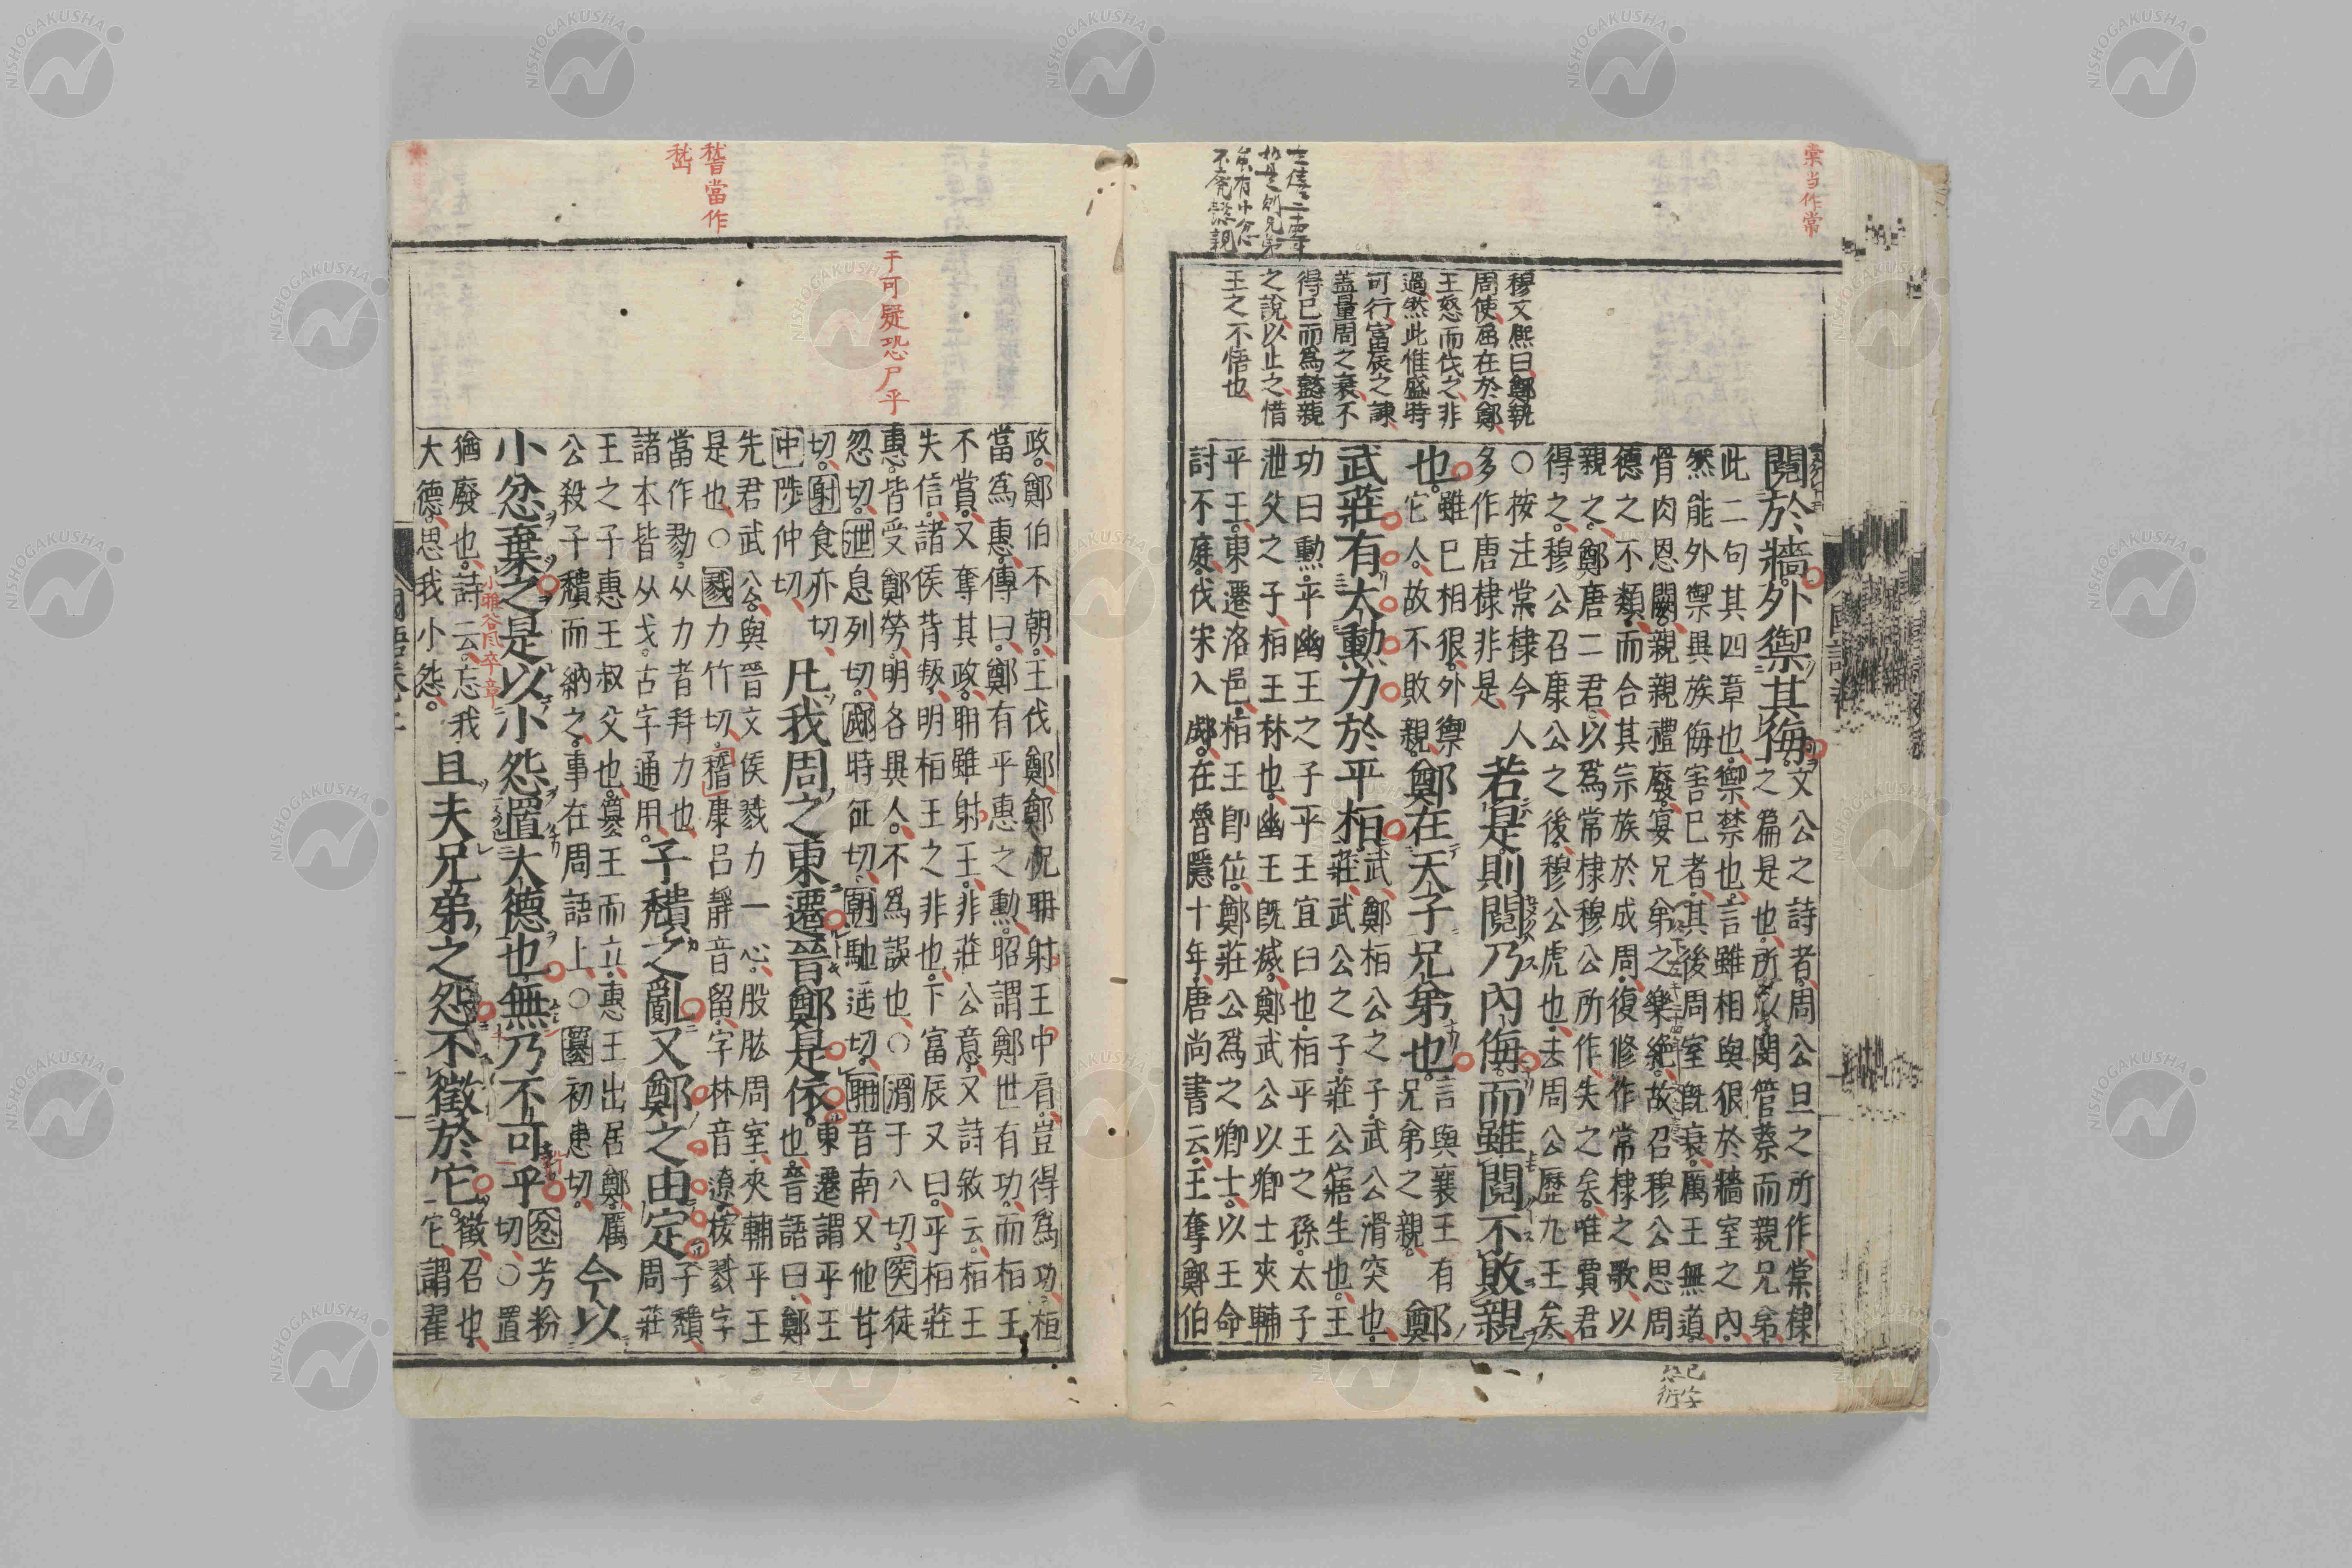 棠当作常
穆文熈曰鄭執
周使固在於鄭
王怒而伐之非
過然此惟盛時
可行富辰之諫
蓋量周之衰不
得已而為懿親
之說以止之惜
王之不悟也
鬩於牆外禦其侮
文公之詩者周公旦之所作棠棣
之篇是也所以閔管蔡而親兄弟
此二句其四章也禦禁也言雖相與狠於牆室之內
然能外禦異族侮害已者其後周室既衰厲王無道
骨肉恩闕親親禮廢宴兄弟之樂絕故召穆公思周
德之不類而合其宗族於成周復修作常棣之歌以
親之鄭唐二君以為常棣穆公所作失之矣唯賈君
得之穆公召康公之後穆公虎也去周公歷九王矣
○按注常棣今人
多作唐棣非是
若是則鬩乃內侮而雖鬩不敗親
也
雖已相狠外禦
它人故不敗親
鄭在天子兄弟也
言與襄王有
兄弟之親
鄭
武莊有大勳力於平桓
武鄭桓公之子武公滑突也
莊武公之子莊公寤生也王
功曰勳平幽王之子平王宜臼也桓平王之孫太子
泄父之子桓王林也幽王既滅鄭武公以卿士夾輔
平王東遷洛邑桓王即位鄭莊公為之卿士以王命
討不庭伐宋入郕在魯隱十年唐尚書云王奪鄭伯
于可疑恐尸乎
稽當作
嵇
政鄭伯不朝王伐鄭鄭祝聃射王中肩豈得為功桓
當為惠傳曰鄭有平惠之勳昭謂鄭世有功而桓王
不賞又奪其政聃雖射王非莊公意又詩敘云桓王
失信諸侯背叛明桓王之非也下富辰又曰平桓莊
惠皆受鄭勞明各異人不為誤也○滑于八切突徒
忽切泄息列切郕時征切朝馳遥切聃音南又他甘
切射食亦切
中陟仲切
凡我周之東遷晉鄭是依
東遷謂平王
也晉語曰鄭
先君武公與晉文侯戮力一心股肱周室夾輔平王
是也○戮力竹切稽康呂靜音留字林音遼按戮字
當作勠从力者并力也
諸本皆从戈古字通用
子穨之亂又鄭之由定
子穨
周莊
王之子惠王叔父也簒王而立惠王出居鄭厲
公殺子穨而納之事在周語上○簒初患切
今以
小忿棄之是以小怨置大德也無乃不可乎
忿芳粉
切○置
猶廢也詩云忘我
大德思我小怨
小雅谷风卒章
且夫兄弟之怨不徵於它
徵召也
它謂翟